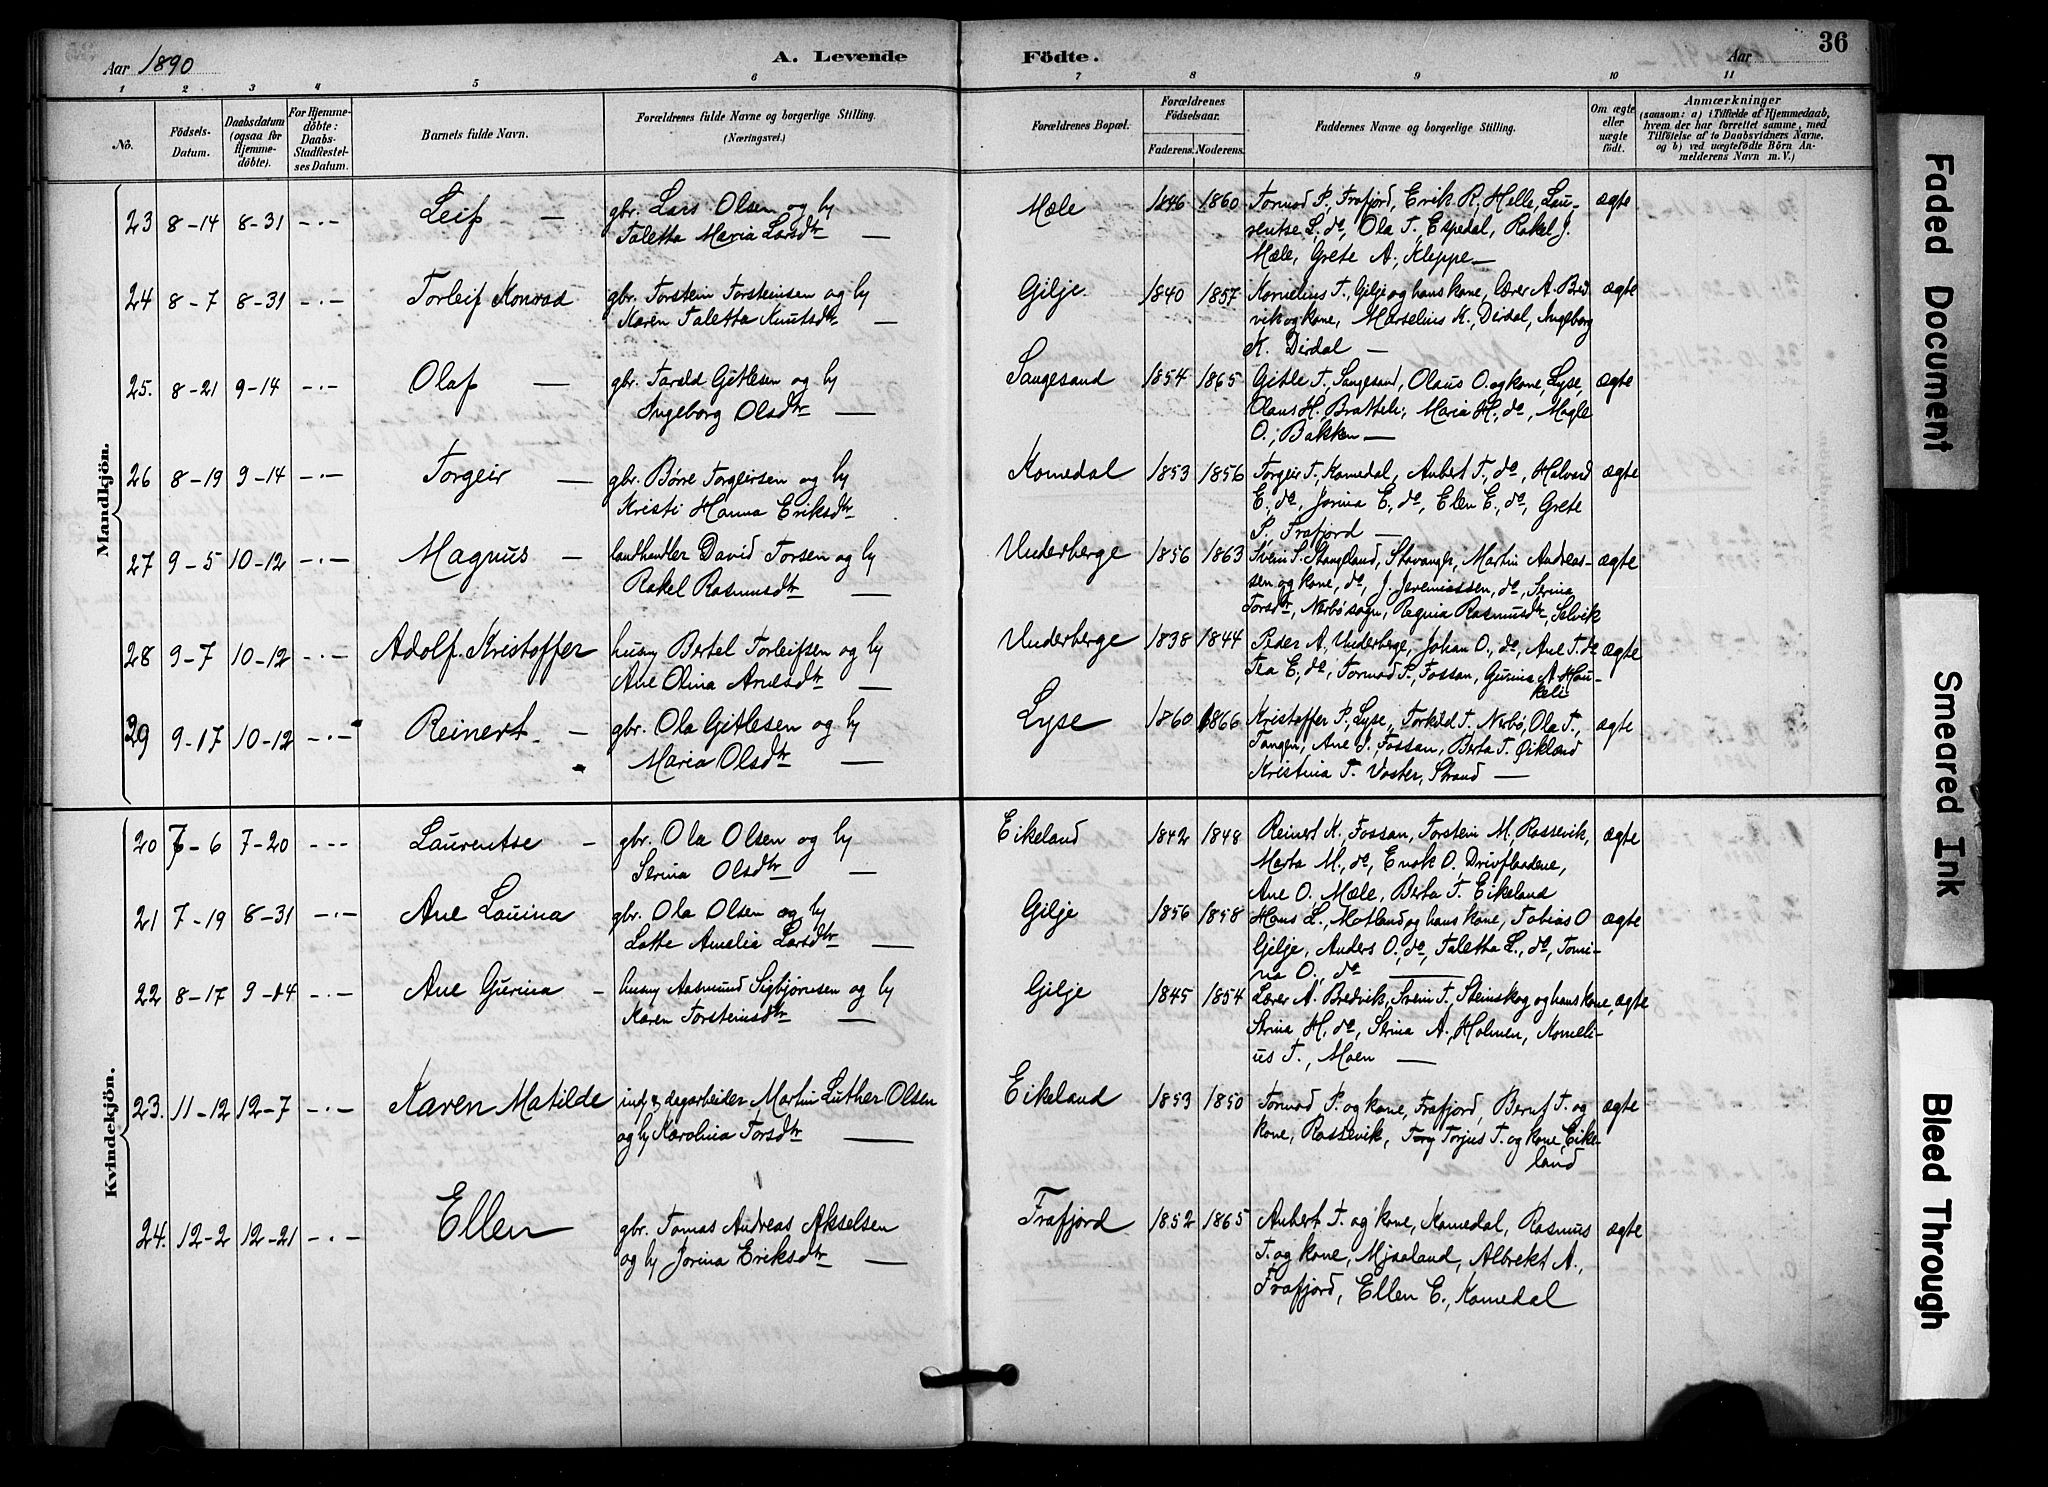 Aar 1890
A. Levende
Födte.
Aar
36
1 2 3 4 5 6 7 8 9 10 11
Nö.
Födsels-
Datum.
Daabsdatum
(ogsaa for
Hjemme-
döbte).
For Hjemme-
döbte:
Daabs-
Stadfæstel-
ses Datum.
Barnets fulde Navn.
Forældrenes fulde Navne og borgerlige Stilling.
(Næringsvei.)
Forældrenes Bopæl.
Forældrenes
Födselsaar.
Faderens. Moderens.
Faddernes Navne og borgerlige Stilling.
Om ægte
eller
uægte
født.
Anmærkninger
(saasom: a) i Tilfælde af Hjemmedaab,
hvem der har forrettet samme, med
Tilföielse af to Daabsvidners Navne,
og b) ved uægtefödte Börn An-
melderens Navn m. V.)
Mandkjön.
23 8-14 8-31 -·- Leif — gbr. Lars Olsen og hu
Taletta Maria Larsdtr —
Mæle 1846 1860 Tormod P., Frafjord, Erik R., Helle, Lau-
rentse L., do, Ola T., Espedal, Rakel J.
Mæle, Grete A., Kleppe — ægte
24 8-7 8-31 -·- Torleif Konrad gbr. Torstein Torsteinsen og hu
Karen Taletta Knutsdtr —
Gilje 1840 1857 Kornelius T., Gilje og hans kone, Lærer A. Bred
vik og kone, Marselius K., Dirdal, Ingeborg
K. Dirdal — ægte
25. 8-21 9-14 -·- Olaf — gbr. Tarald Gitlesen og hu
Ingeborg Olsdtr —
Sangesand 1854 1865 Gitle T., Sangesand, Olaus O. og kone, Lyse,
Olaus H., Bratteli, Maria H., do, Magle
O., Bakken — ægte
26 8-19 9-14 -·- Torgeir — gbr. Børre Torgeirsen og hu
Kristi Hanna Eriksdtr
Komedal 1853 1856 Torgeir T. Komedal, Aubert T., do, Halvard
E., do, Jorina E., do, Elen E., do, Grete
P., Frafjord — ægte
27 9-5 10-12 -·- Magnus — landhandler David Torsen og hu
Rakel Rasmusdtr —
Underberge 1856 1863 Svein S. Stangeland, Stavanger, Martin Andreas-
sen og kone, do, J. Jeremiassen, do, Serina
Torsdtr, Nærbø sogn, Regina Rasmusdtr, Selvik ægte
28 9-7 10-12 -·- Adolf Kristoffer husm Bertel Torleifsen og hu
Ane Olina Arnesdtr —
Underberge 1838 1844 Peder A., Underberge, Johan O., do, Ane T. do
Tea E., do, Tormod P., Fossan, Gurina A. Hau-
keli ægte
29 9-17 10-12 -·- Reinert — gbr. Ola Gitlesen og hu
Maria Olsdtr —
Lyse 1860 1866 Kristoffer P., Lyse, Torkild T., Nerbø, Ola T.,
Tangen, Ane J. Fossan, Berta T. Eikland
Kristina T. Voster, Strand — ægte
Kvindekjön.
20 7-6 7-20 --- Laurentse — gbr. Ola Olsen og hu
Serina Olsdtr —
Eikeland 1842 1848 Reinert K., Fossan, Torstein M., Rossevik,
Marta M., do, Enok O., Drivflaadene,
Ane O. Mæle, Berta T. Eikeland ægte
21 7-19 8-31 -·- Ane Lauina gbr. Ola Olsen og hu
Lotte Amalia Larsdtr —
Gilje 1856 1858 Hans L., Motland og hans kone, Tobias O
Gilje, Anders O., do, Taletta L., do, Tomi-
na O., do — ægte
22 8-17 9-14 -·- Ane Gurina — husm Aasmund Sigbjørnsen og hu
Karen Torsteinsdtr —
Gilje 1845 1854 Lærer A. Bredvik, Svein T., Steinskog og hans kone,
Serina H., do, Serina A., Holmen, Korneli-
us T., Moen — ægte
23. 11-12 12-7 -·- Karen Matilde ind. & dagarbeider Martin Luther Olsen
og hu Karolina Torsdtr —
Eikeland 1853 1850 Tormod P. og kone, Frafjord, Bernt T. og
kone, Rossevik, Torjus T. og kone, Eike-
land ægte
24. 12-2 12-21 -·- Ellen gbr. Tomas Andreas Akselsen
og hu Jorina Eriksdtr —
Frafjord 1852 1865 Aubert T. og kone, Komedal, Rasmus
T. og kone, Mjaaland, Albrekt A.,
Frafjord, Ellen E., Komedal ægte
Faded Document
Smeared Ink
Bleed Through